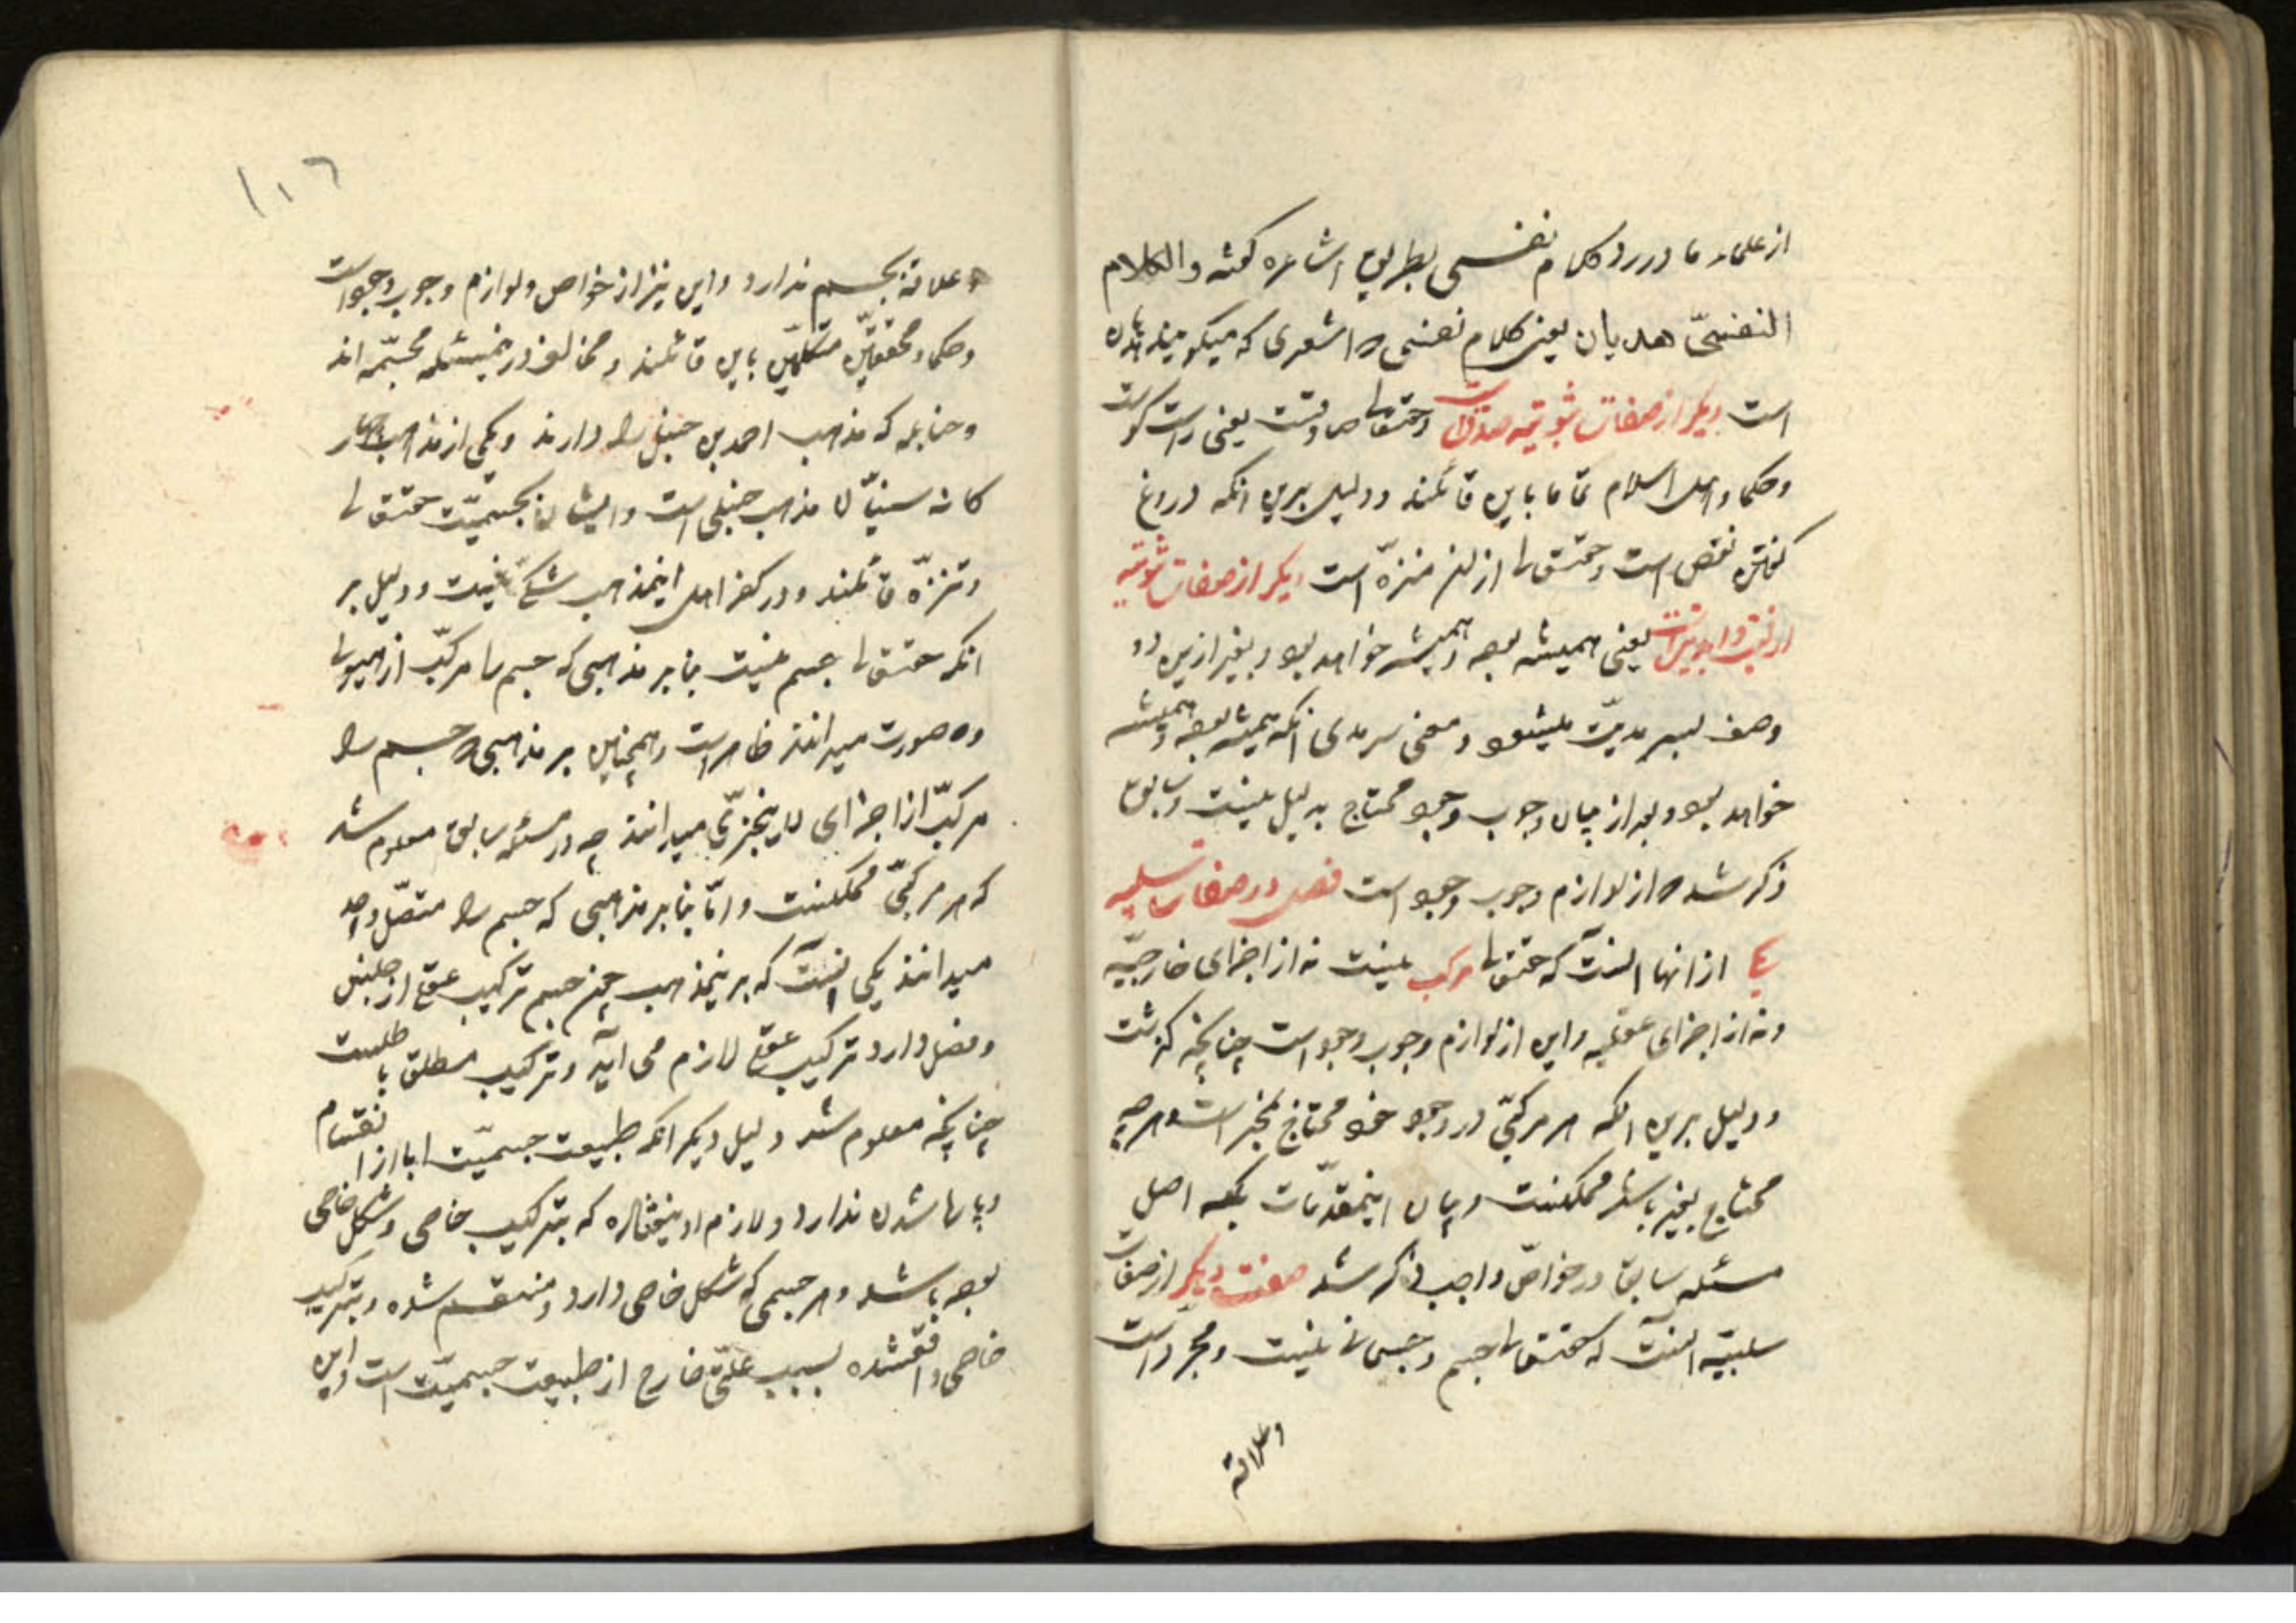 از علماء ما در رد کلام نفسی بطریق اشاعره گفته والکلام
النفسیّ هذیان یعنی کلام نفسی که اشعری که میگویند هذیان
است دیگر از صفات ثبوتیه صدقست وحقتعالی صادقست یعنی راست گوست
وحکما واهل اسلام تماما باین قائلند ودلیل برین انکه دروغ
گفتن نقص است وحقتعالی از نقص منزّه است دیگر از صفات ثبوتیه
ازلیّت وابدیّتست یعنی همیشه بوده وهمیشه خواهد بود وبغیر ازین دو
وصف بسرمدیّت میشود ومعنی سرمدی انکه همیشه بوده وهمیشه
خواهد بود وبعد از بیان وجوب وجود محتاج بدلیل نیست وسابق
ذکر شد که از لوازم وجوب وجود است فصل در صفات سلبیه
یکی از انها انست که حقتعالی مرکب نیست نه از اجزای خارجیّه
ونه از اجزای عقلیه واین از لوازم وجوب وجود است چنانچه گذشت
ودلیل برین انکه هر مرکبّی در وجود خود محتاج بجزء است وهر چه
محتاج بغیر باشد ممکنست وبیان اینمقدّمات بلکه اصل
مسئله سابق در خواصّ واجب ذکر شد صفت دیگر از صفات
سلبیّه انست که حقتعالی جسم وجسمانی نیست ومجرّد است
وعلاقه
۱۰۶
وعلاقه بجسم ندارد واین نیز از خواص ولوازم وجوب وجود است
وحکما ومحققین متکلّمین باین قائلند ومخالف در اینمسئله مجسّمه اند
وحنابله که مذهب احمد بن حنبل را دارند ویکی از مذاهب چهار
کانه سنیّان مذهب حنبلی است وایشان بجسمیّت حقتعالی
وتنزّه قائلند ودر کفر اهل اینمذهب شکّی نیست ودلیل بر
انکه حقتعالی جسم نیست بنابر مذهبی که جسم را مرکّب از هیولی
وصورت میدانند ظاهر است وهمچنین بر مذهبی که جسم را
مرکّب از اجزای لایتجزّی میدانند چه در مسئله سابق معلوم شد
که هر مرکبّی ممکنست وامّا بنابر مذهبی که جسم را متصّل واحد
میدانند یکی انست که برینمذهب چون جسم ترکیب عقلی از جنس
وفصل دارد ترکیب عقلی لازم می آید وترکیب مطلق باطلست
چنانچه معلوم شد دلیل دیگر انکه طبیعت جسمیّت ابا از انقسام
وپاره شدن ندارد ولازم او نیفتاده که بترکیب خاصی وشکل خاصی
بوده باشد وهر جسمی که شکل خاصی دارد ومنقسم شده وبترکیب
خاصی واقعشده بسبب علّتی خارج از طبیعت جسمیّت است واین